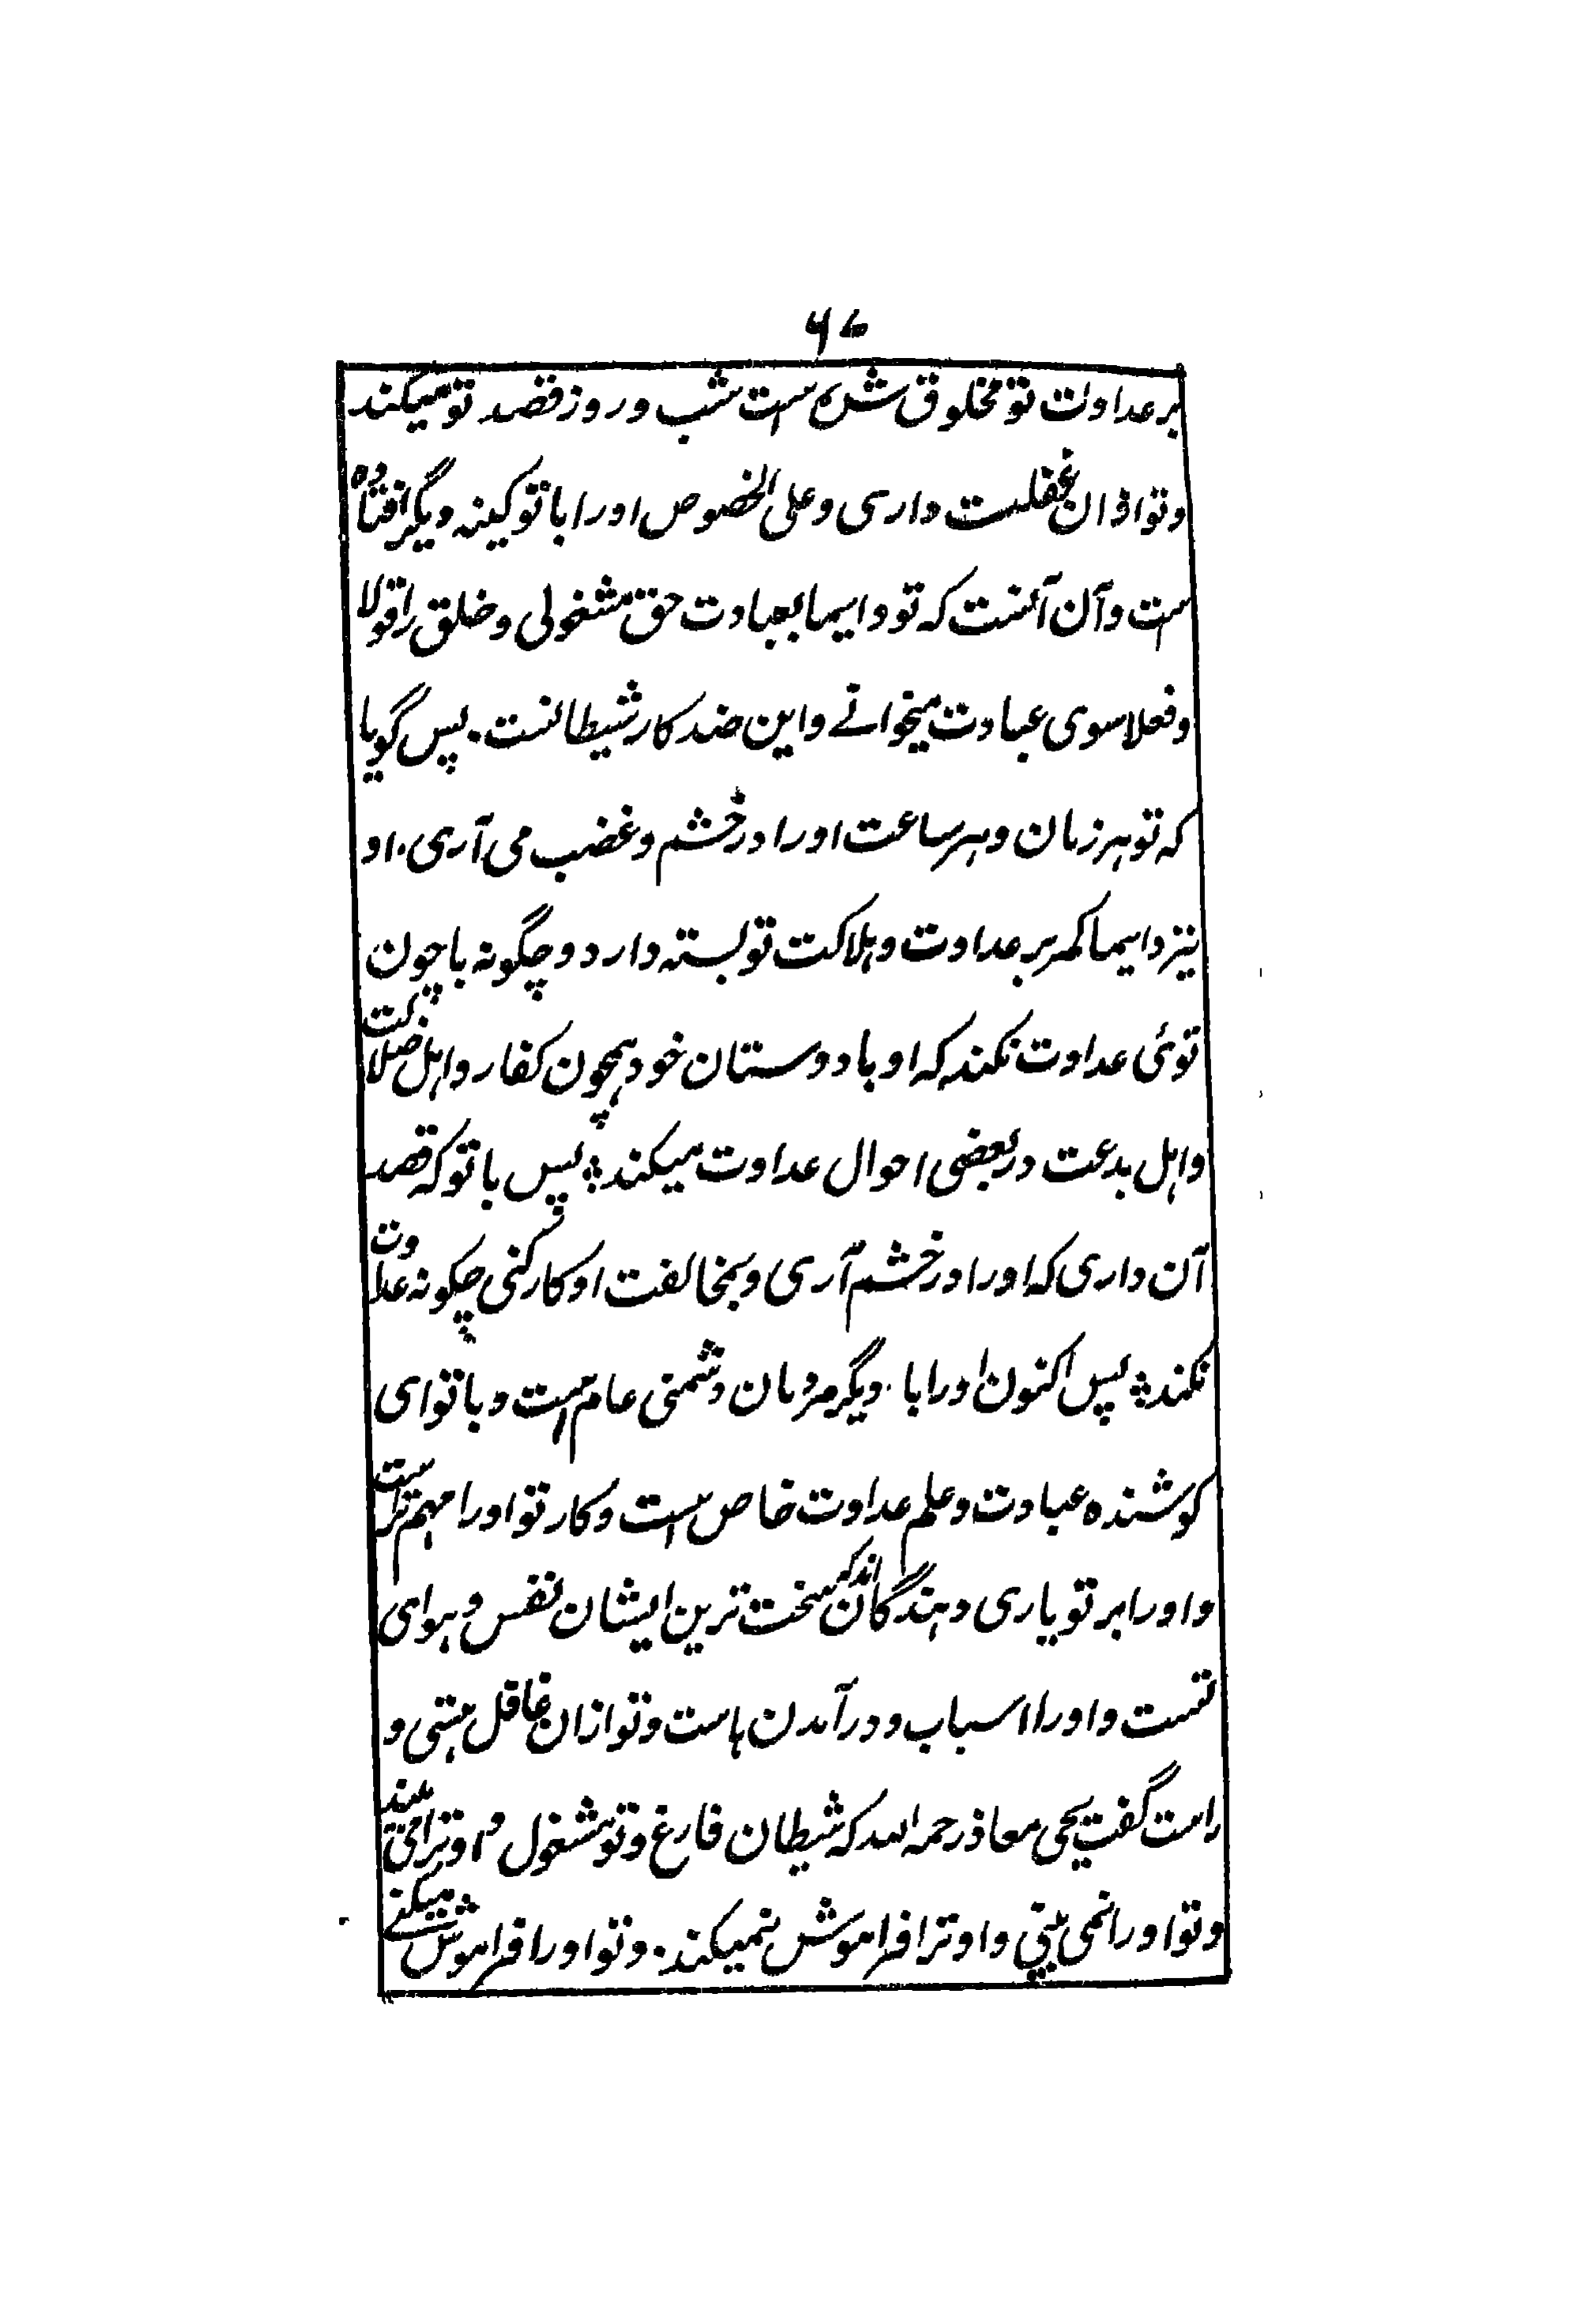 ۶۷
بر عداوت تو مخلوق شده است شب و روز قصد تو میکند
و تو ازان غفلت داری و علی الخصوص او را با تو کینه دیگر افتاده
است و آن آنست که تو دایما بعبادت حق مشغولی و خلق را قولا
و فعلا سوی عبادت میخوانے و این ضد کار شیطانست. پس گویا
که تو هر زمان و هر ساعت او را در خشم و غضب می آری. او
نیز دایما کمر بر عداوت و هلاکت تو بسته دارد و چگونه با چون
توئی عداوت نکند که او با دوستان خود همچون کفار و اهل ضلالت
و اهل بدعت در بعضی احوال عداوت میکند؞ پس با تو که قصد
آن داری که او را در خشم آری و بمخالفت او کار کنی چگونه عداوت
نکند؞ پس اکنون او را با. دیگر مردمان دشمنی عام است و با تو ای
کوشنده عبادت و علم عداوت خاص است و کار تو او را مهم تر است
و او را بر تو یاری دهندگان اند که سخت ترین ایشان نفس و هوای
تست و او را اسباب و درآمدن هاست و تو ازان غافل هستی و
راست گفت یحی معاذ رحمه الله که شیطان فارغ و تو مشغول و او ترا می بیند
و تو او را نمی بینی و او ترا فراموش نمیکند. و تو او را فراموش میکنے